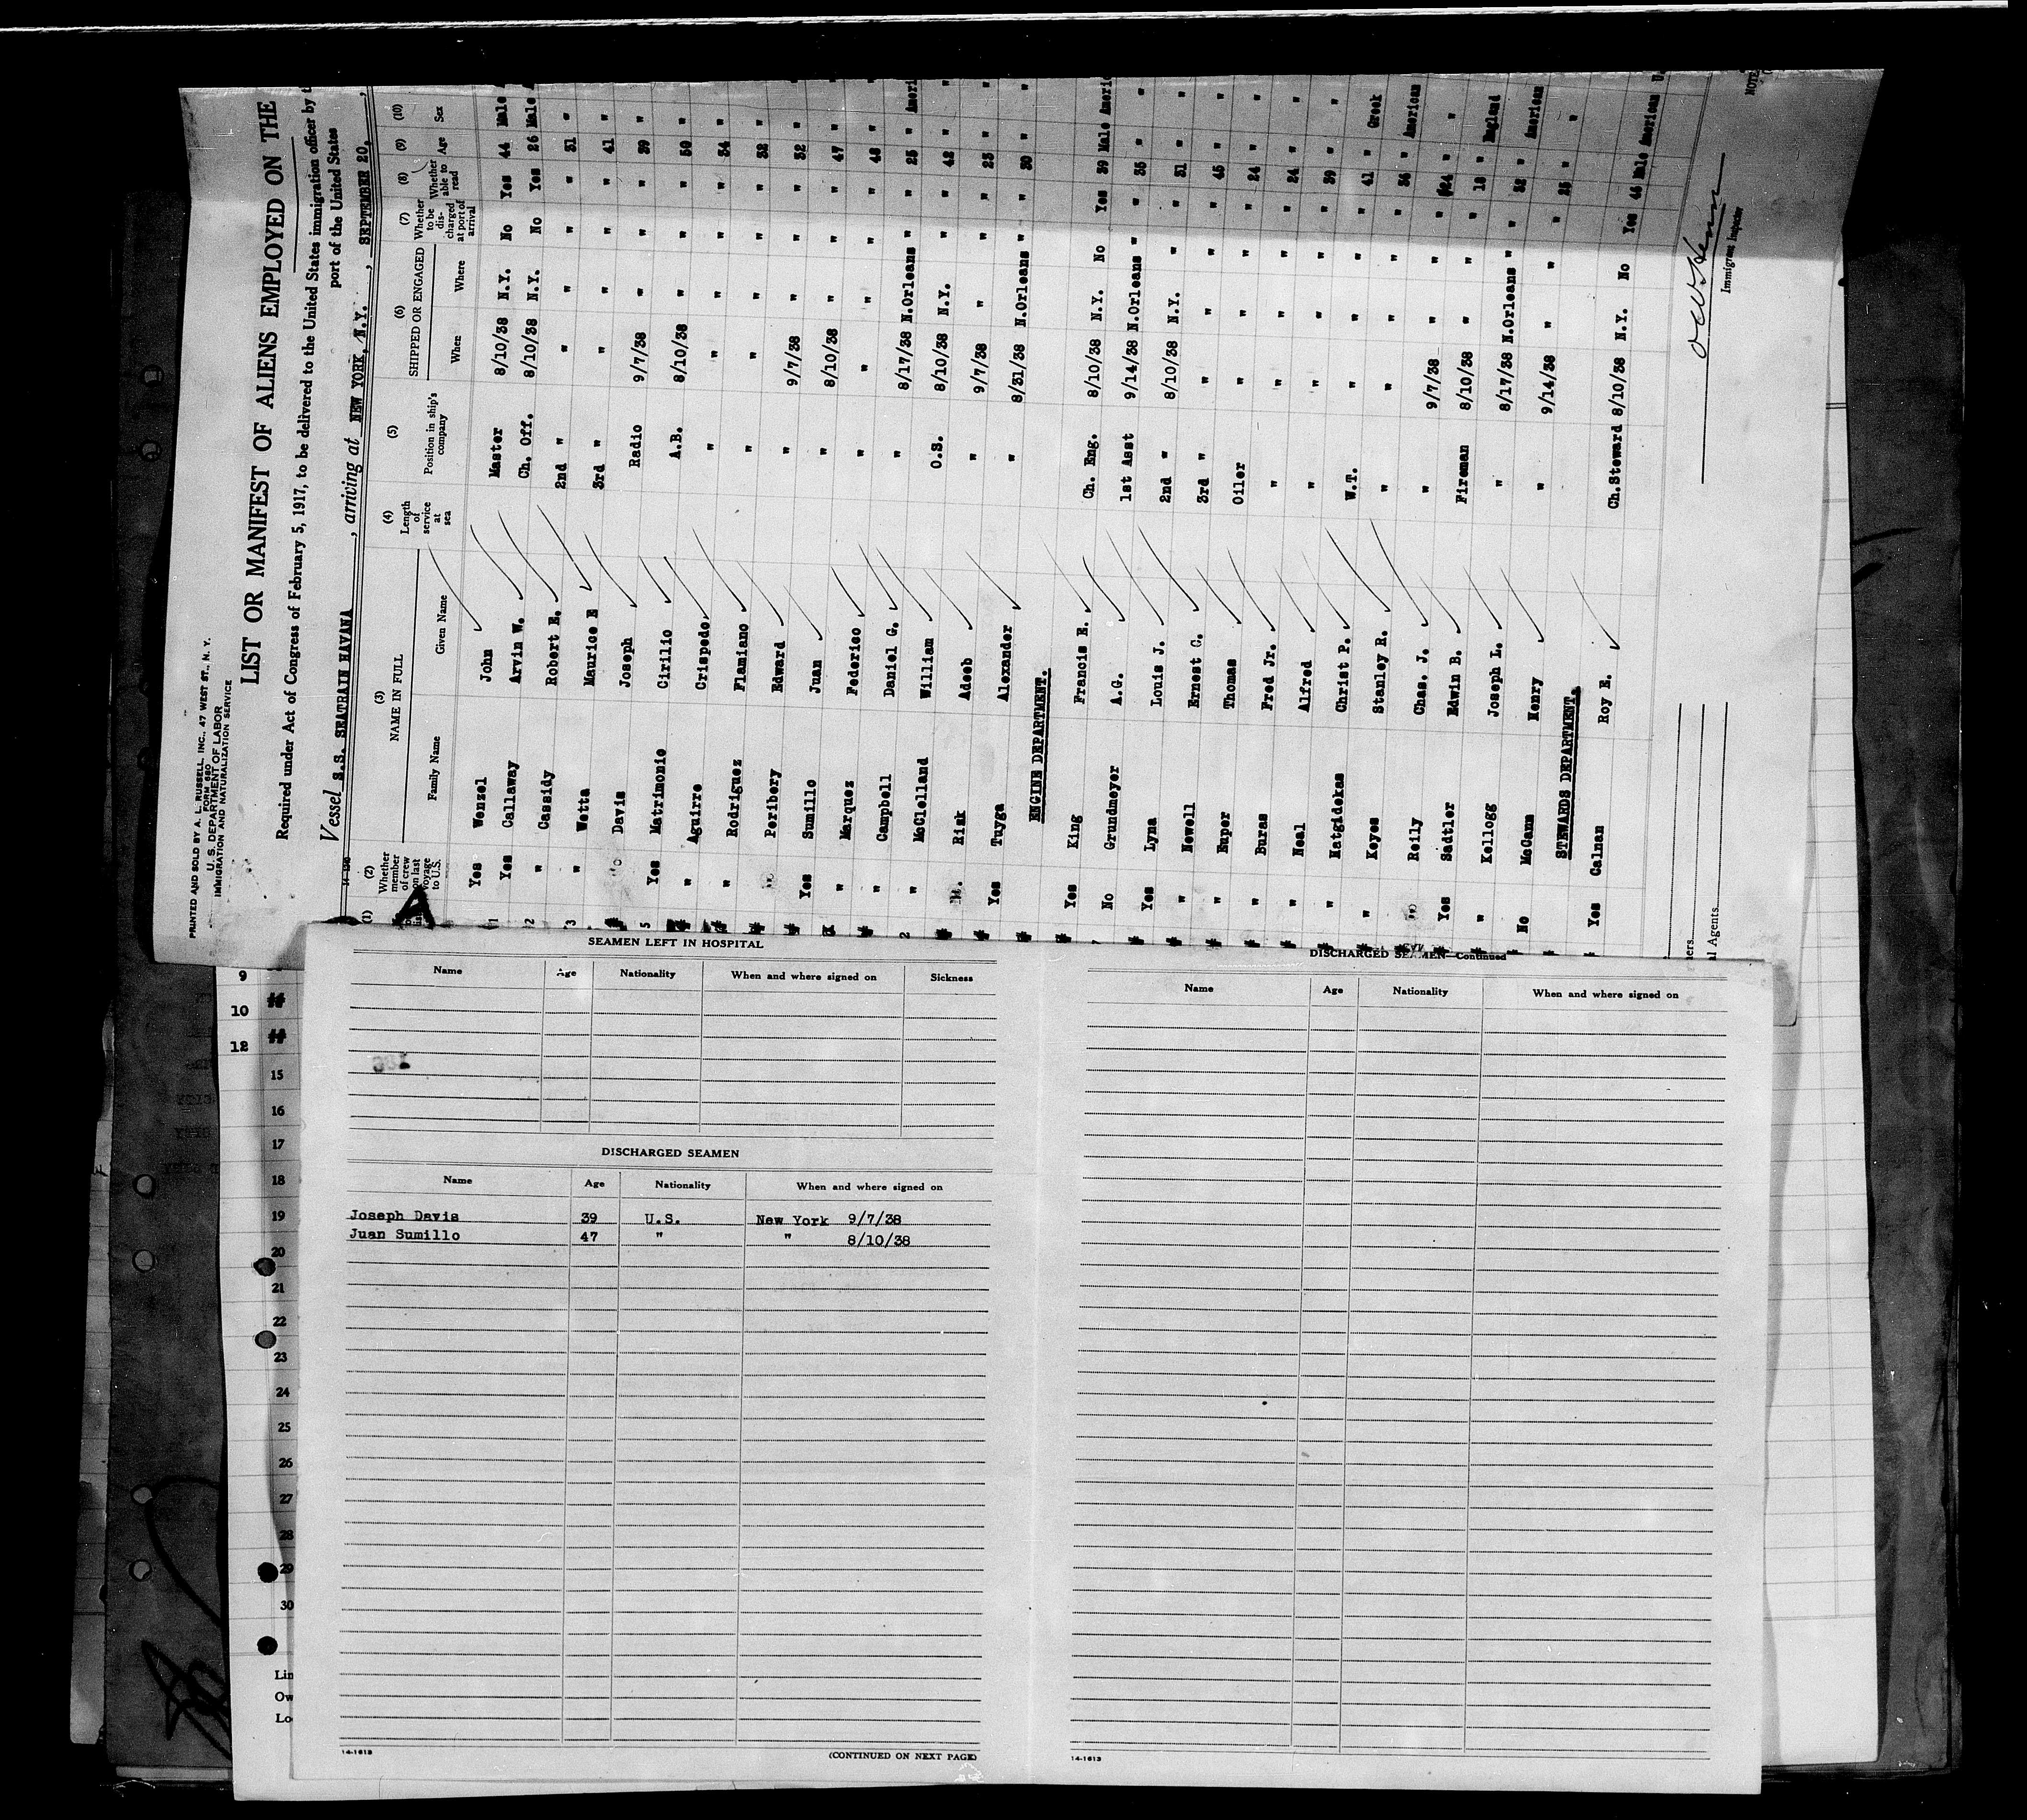 PRINTED AND SOLD BY A. L. RUSSELL, INC., 47 WEST ST., N. Y.
FORM 680
U. S. DEPARTMENT OF LABOR
IMMIGRATION AND NATURALIZATION SERVICE
LIST OR MANIFEST OF ALIENS EMPLOYED ON THE
Required under Act of Congress of February 5, 1917, to be delivered to the United States immigration officer by
port of the United States
Vessel S.S. SEATRAIN HAVANA, arriving at NEW YORK, N.Y., SEPTEMBER 20,
(1) (2) (3) (4) (5) (6) (7) (8) (9) (10)
Whether member of crew on last voyage to U.S. NAME IN FULL Length of service at sea Position in ship's company SHIPPED OR ENGAGED Whether to be discharged at port of arrival Whether able to read Age Sex
Family Name Given Name When Where
A
1 Yes Wenzel John Master 8/10/38 N.Y. No Yes 44 Male
2 Yes Callaway Arvin W. Ch. Off. 8/10/38 N.Y. No Yes 26 Male
3 " Cassidy Robert E. 2nd " " " " " 31 "
" Wetta Maurice E 3rd " " " " " 41 "
5 Davis Joseph Radio 9/7/38 " " " 39 "
Yes Matrimonio Cirilio A.B. 8/10/38 " " " 50 "
" Aguirre Crispedo " " " " " 34 "
" Rodriguez Flamiano " " " " " 32 "
Peribery Edward " 9/7/38 " " " 32 "
Yes Sumillo Juan " 8/10/38 " " " 47 "
" Marquez Federico " " " " " 48 "
" Campbell Daniel G. " 8/17/38 N.Orleans " " 25 " Ameri
" McClelland William O.S. 8/10/38 N.Y. " " 42 " "
Risk Adeeb " 9/7/38 " " " 23 " "
Yes Tuyga Alexander " 8/31/38 N.Orleans " " 30 " "
ENGINE DEPARTMENT.
Yes King Francis E. Ch. Eng. 8/10/38 N.Y. No Yes 39 Male Americ
No Grundmeyer A.G. 1st Asst 9/14/38 N.Orleans " " 35 " "
Yes Lyna Louis J. 2nd " 8/10/38 N.Y. " " 31 " "
" Newell Ernest C. 3rd " " " " " 45 " "
" Euper Thomas Oiler " " " " 24 " "
" Buras Fred Jr. " " " " " 24 " "
" Neal Alfred " " " " " 39 " "
" Hatgidekas Christ P. W.T. " " " " 41 " Greek
" Keyes Stanley R. " " " " " 34 " American
Reily Chas. J. " 9/7/38 " " " 24 " "
Yes Sadtler Edwin B. Fireman 8/10/38 " " " 18 " England
" Kellogg Joseph L. " 8/17/38 N.Orleans " " 32 " American
No McCann Henry " 9/14/38 " " " 25 " "
STEWARDS DEPARTMENT.
Yes Calnan Roy E. Ch.Steward 8/10/38 N.Y. No Yes 46 Male American U.
Immigrant Inspector
NOTE
Agents
9
10
12
15
16
17
18
19
20
21
22
23
24
25
26
27
28
29
30
Lin
Ow
Lo
SEAMEN LEFT IN HOSPITAL
Name Age Nationality When and where signed on Sickness
DISCHARGED SEAMEN
Name Age Nationality When and where signed on
Joseph Davis 39 U.S. New York 9/7/38
Juan Sumillo 47 " " 8/10/38
14-1613 (CONTINUED ON NEXT PAGE)
DISCHARGED SEAMEN—Continued
Name Age Nationality When and where signed on
14-1613